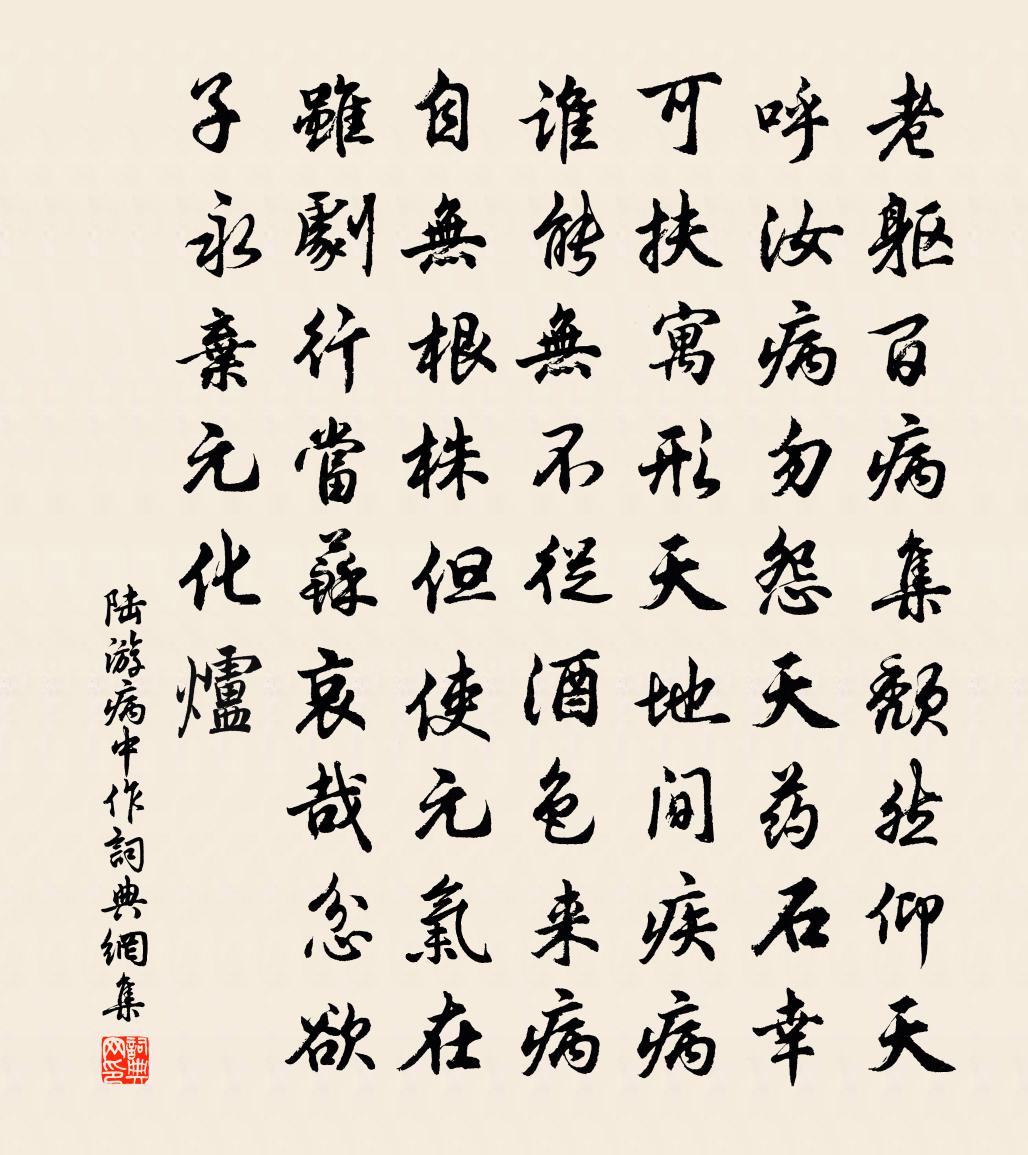 老躯百病集颓然仰天
呼汝病勿怨天药石幸
可扶寓形天地間疾病
谁能無不從酒色来病
自無根株但使元氣在
雖劇行當蘇哀哉忿欲
子永棄元化爐
陆游病中作詞典網集
詞典网印